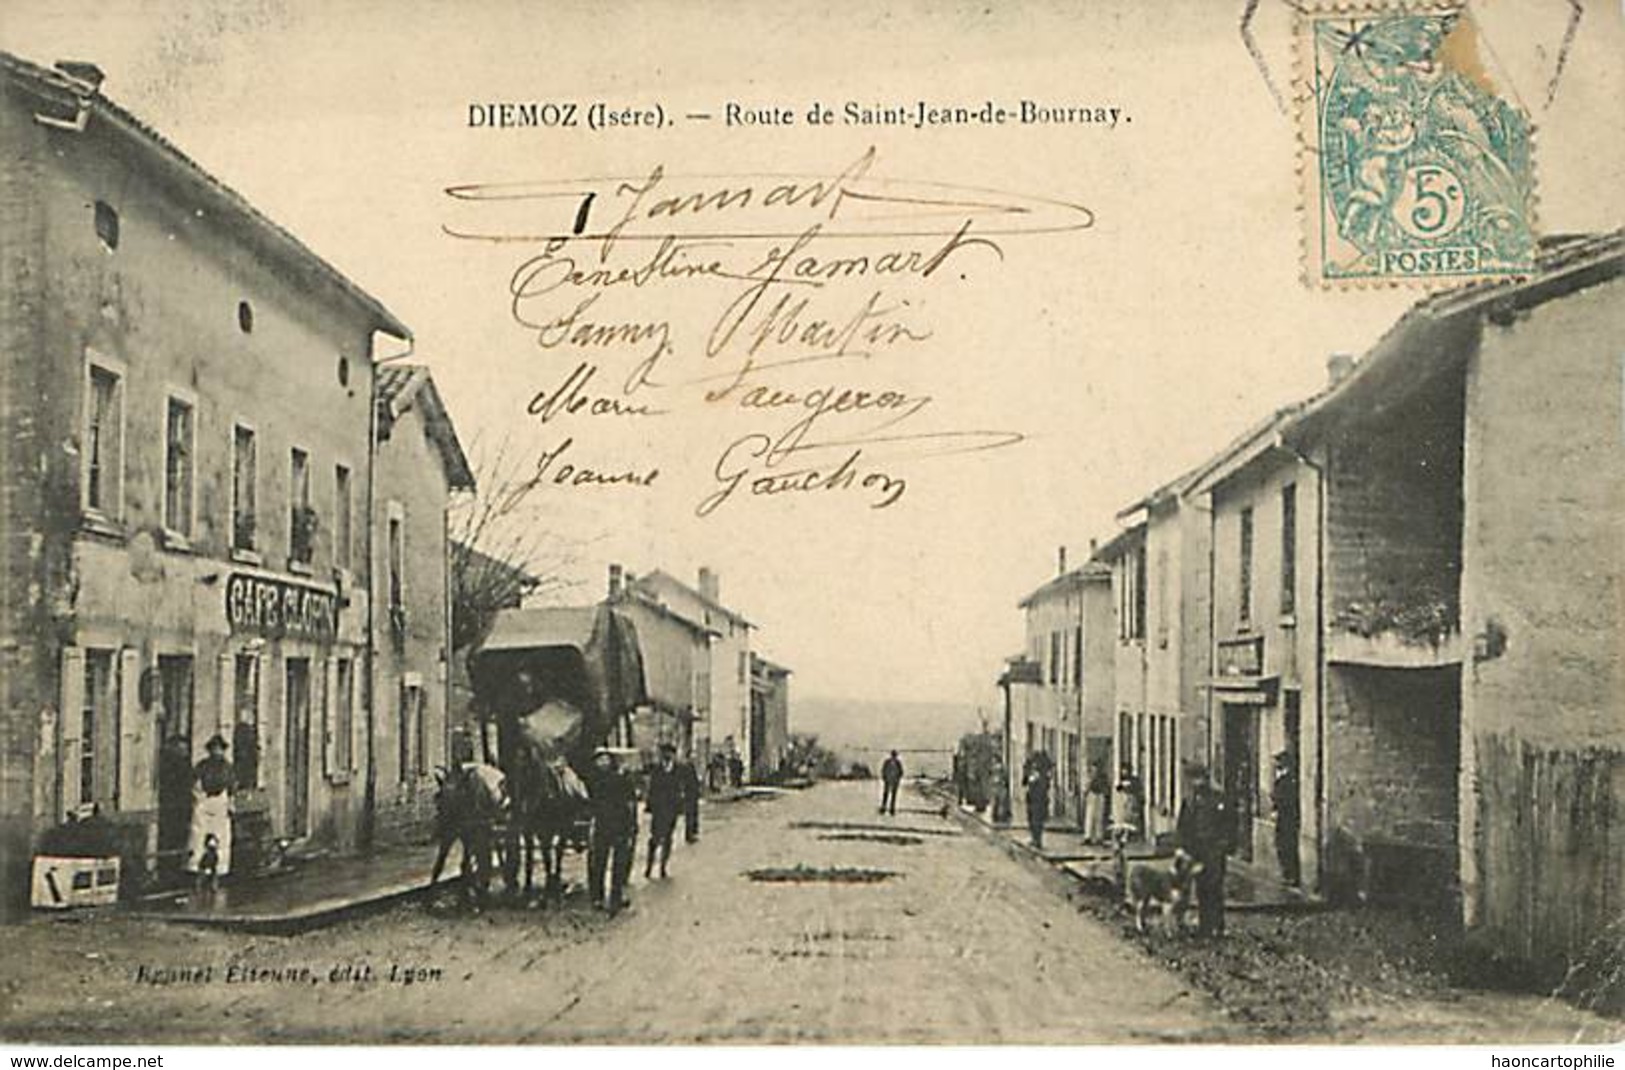 DIEMOZ (Isére). — Route de Saint-Jean-de-Bournay.
Jamart
Ernestine Jamart.
Fanny Martin
Marie Faugeron
Jeanne Gauchon
5c
POSTES
CAFE CLOPIN
Brunel Etienne, édit. Lyon
www.delcampe.net
haoncartophilie